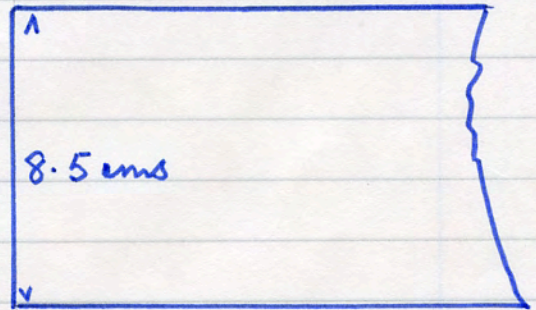 8.5 cms